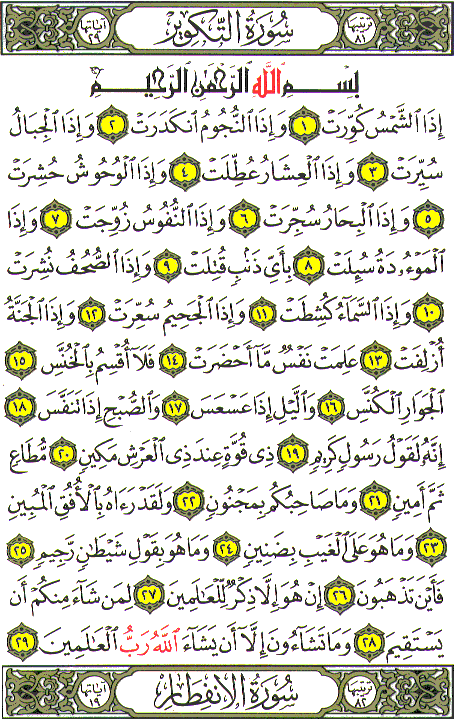 ترتيبها ٨١ سُورَةُ التَّكْوِير آياتها ٢٩
بِسْمِ ٱللَّهِ ٱلرَّحْمَٰنِ ٱلرَّحِيمِ
إِذَا ٱلشَّمْسُ كُوِّرَتْ ١ وَإِذَا ٱلنُّجُومُ ٱنكَدَرَتْ ٢ وَإِذَا ٱلْجِبَالُ
سُيِّرَتْ ٣ وَإِذَا ٱلْعِشَارُ عُطِّلَتْ ٤ وَإِذَا ٱلْوُحُوشُ حُشِرَتْ
٥ وَإِذَا ٱلْبِحَارُ سُجِّرَتْ ٦ وَإِذَا ٱلنُّفُوسُ زُوِّجَتْ ٧ وَإِذَا
ٱلْمَوْءُۥدَةُ سُئِلَتْ ٨ بِأَىِّ ذَنۢبٍ قُتِلَتْ ٩ وَإِذَا ٱلصُّحُفُ نُشِرَتْ
١٠ وَإِذَا ٱلسَّمَآءُ كُشِطَتْ ١١ وَإِذَا ٱلْجَحِيمُ سُعِّرَتْ ١٢ وَإِذَا ٱلْجَنَّةُ
أُزْلِفَتْ ١٣ عَلِمَتْ نَفْسٌ مَّآ أَحْضَرَتْ ١٤ فَلَآ أُقْسِمُ بِٱلْخُنَّسِ ١٥
ٱلْجَوَارِ ٱلْكُنَّسِ ١٦ وَٱلَّيْلِ إِذَا عَسْعَسَ ١٧ وَٱلصُّبْحِ إِذَا تَنَفَّسَ ١٨
إِنَّهُۥ لَقَوْلُ رَسُولٍ كَرِيمٍ ١٩ ذِى قُوَّةٍ عِندَ ذِى ٱلْعَرْشِ مَكِينٍ ٢٠ مُّطَاعٍ
ثَمَّ أَمِينٍ ٢١ وَمَا صَاحِبُكُم بِمَجْنُونٍ ٢٢ وَلَقَدْ رَءَاهُ بِٱلْأُفُقِ ٱلْمُبِينِ
٢٣ وَمَا هُوَ عَلَى ٱلْغَيْبِ بِضَنِينٍ ٢٤ وَمَا هُوَ بِقَوْلِ شَيْطَٰنٍ رَّجِيمٍ ٢٥
فَأَيْنَ تَذْهَبُونَ ٢٦ إِنْ هُوَ إِلَّا ذِكْرٌ لِّلْعَٰلَمِينَ ٢٧ لِمَن شَآءَ مِنكُمْ أَن
يَسْتَقِيمَ ٢٨ وَمَا تَشَآءُونَ إِلَّآ أَن يَشَآءَ ٱللَّهُ رَبُّ ٱلْعَٰلَمِينَ ٢٩
ترتيبها ٨٢ سُورَةُ الِانْفِطَار آياتها ١٩